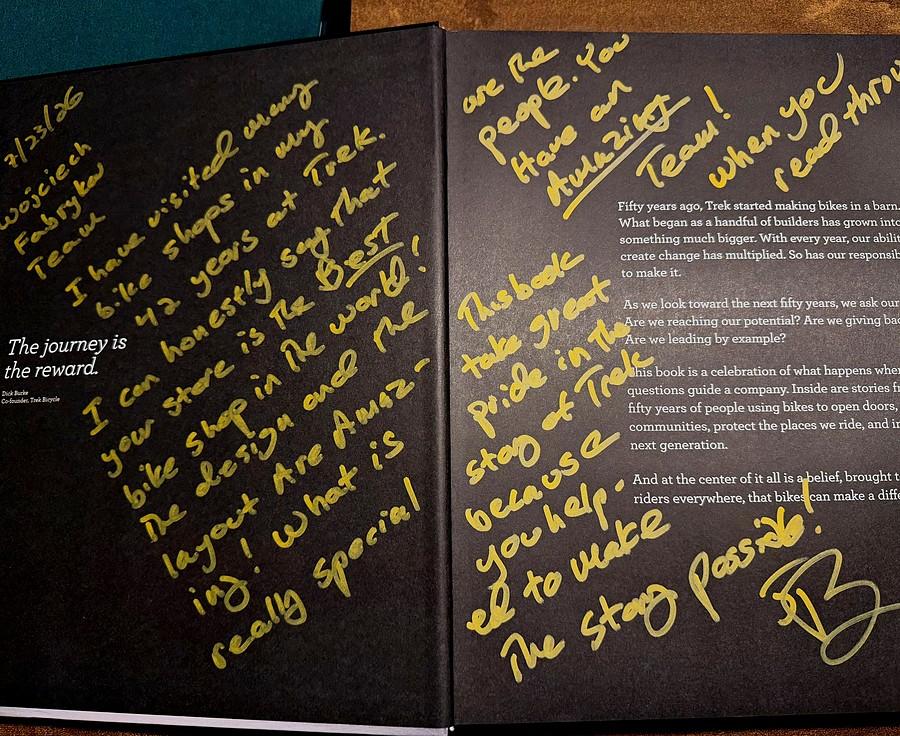 7/23/26
Wojciech
Fabryka
Team
I have visited many
bike shops in my
42 years at Trek.
I can honestly say that
your store is the Best
bike shop in the world!
The design and the
layout Are Amaz-
ing! What is
really special
The journey is
the reward.
Dick Burke
Co-founder, Trek Bicycle
are the
people. You
Have an
Amazing
Team!
when you
read throu
This book
take great
pride in the
story of Trek
because
you help-
ed to make
The story possible!
Fifty years ago, Trek started making bikes in a barn.
What began as a handful of builders has grown into
something much bigger. With every year, our abilit
create change has multiplied. So has our responsib
to make it.
As we look toward the next fifty years, we ask our
Are we reaching our potential? Are we giving bac
Are we leading by example?
This book is a celebration of what happens when
questions guide a company. Inside are stories f
fifty years of people using bikes to open doors,
communities, protect the places we ride, and in
next generation.
And at the center of it all is a belief, brought t
riders everywhere, that bikes can make a diffe